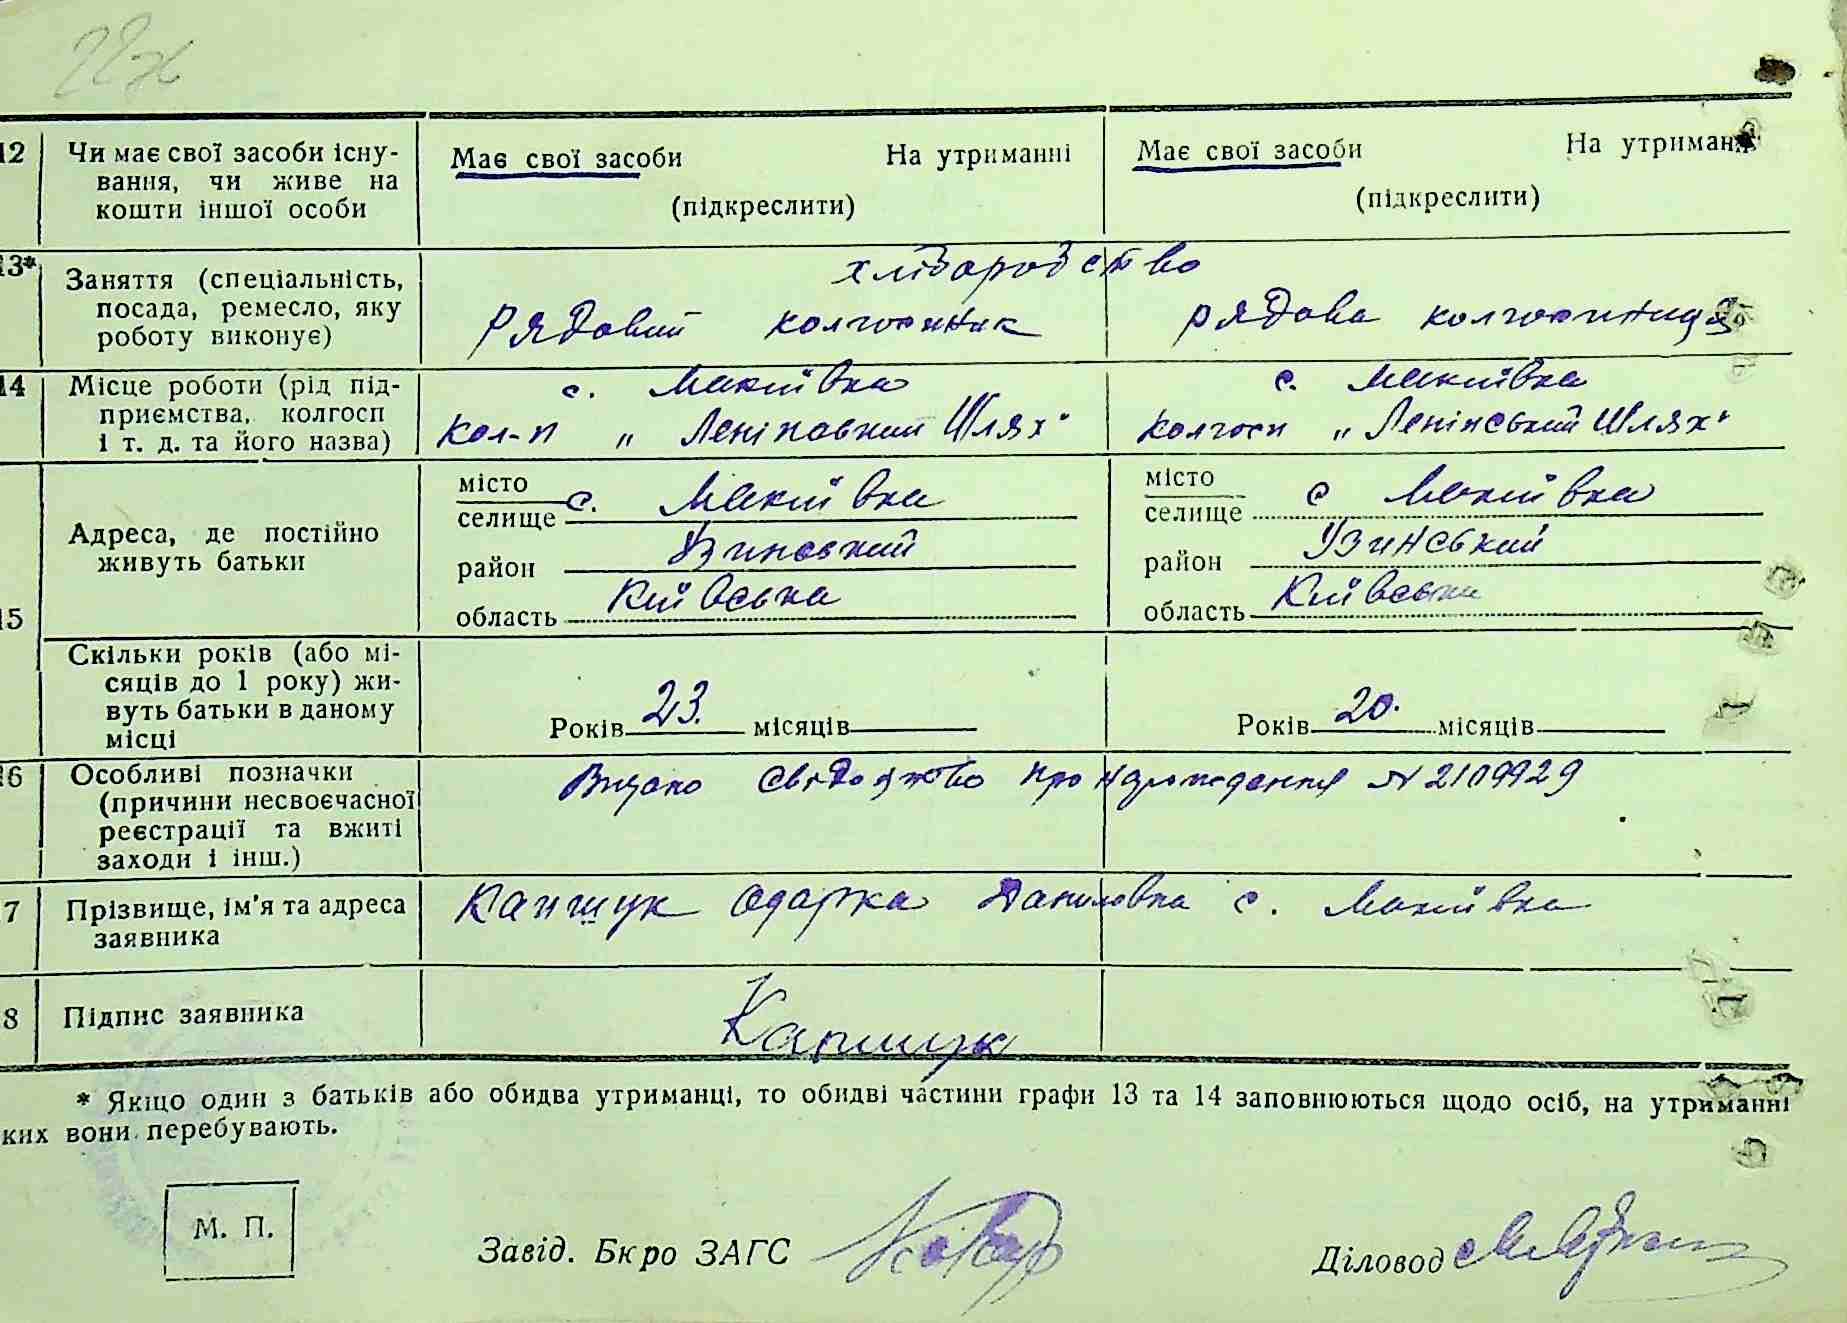 22ж
12 Чи має свої засоби існу-
вання, чи живе на
кошти іншої особи
Має свої засоби На утриманні
(підкреслити)
Має свої засоби На утриманні
(підкреслити)
13* Заняття (спеціальність,
посада, ремесло, яку
роботу виконує)
хліборобство
рядовий колгоспник
рядова колгоспниця
14 Місце роботи (рід під-
приємства, колгосп
і т. д. та його назва)
с. Макіївка
кол-п „Леніновский Шлях"
с. Макіївка
колгосп „Ленінський Шлях"
15 Адреса, де постійно
живуть батьки
місто
селище с. Макіївка
район Узинський
область Київська
місто
селище с Макіївка
район Узинський
область Київська
Скільки років (або мі-
сяців до 1 року) жи-
вуть батьки в даному
місці
Років 23. місяців
Років 20. місяців
16 Особливі позначки
(причини несвоєчасної
реєстрації та вжиті
заходи і інш.)
Видано свідоцтво про народження N 2109929
7 Прізвище, ім'я та адреса
заявника
Капшук Одарка Даниловна с. Макіївка
8 Підпис заявника
Капшук
* Якщо один з батьків або обидва утриманці, то обидві частини графи 13 та 14 заповнюються щодо осіб, на утриманні
ких вони перебувають.
М. П.
Завід. Бюро ЗАГС
Діловод